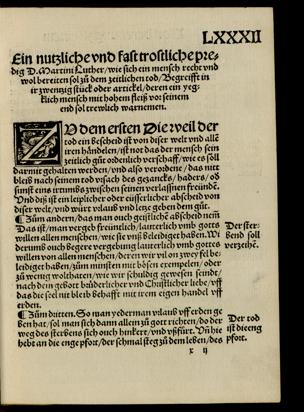 LXXXII
Ein nutzliche vnd fast trostliche pre-
dig D. Martini Luther/wie sich ein mensch recht vnd
wol bereiten sol zů dem zeitlichen tod/Begreifft in
ir zwentzig stück oder artickel/deren ein yeg-
klich mensch mit hohem fleiß vor seinem
end sol trewlich warnemen.
ZV dem ersten Die weil der
tod ein bescheid ist von diser welt vnd alle
iren händelen/ist not das der mensch sein
zeitlich gůt ordenlich verschaff/wie es soll
darmit gehalten werden/vnd also verordene/das nit
bleib nach seinem tod vrsach des gezancks/haders/od
sunst eins irtumbs zwischen seinen verlaßnen freünde.
Vnd diß ist ein leiplicher oder eüsserlicher abscheid von
diser welt/vnd würt vrlaub vnd letze geben dem gůt.
¶ Zům andern/das man ouch geistliche abscheid nem
Das ist/man vergeb freüntlich/lauterlich vmb gottes
willen allen menschen/wie sie vnß beleidiget haben. Wi
derumb ouch begere vergebung lauterlich vmb gottes
willen von allen menschen/deren wir vil on zwey fel be-
leidiget haben/zům minsten mit bösen exempelen/oder
zů wenig wolthaten/wie wir schuldig gewesen seindt/
nach dem gebott brüderlicher vnd Christlicher liebe/vff
das die seel nit bleib behafft mit irem eigen handel vff
erden.
Der ster-
bend soll
verzeihe.
¶ Zům dritten. So man yederman vrlaub vff erden ge
ben hat/sol man sich dann allein zů gott richten/do der
weg des sterbens sich ouch hinkert/vnd vßfürt. Vn hie
hebt an die enge pfort/der schmal steg zů dem leben/des
Der tod
ist die eng
pfort.
x ij